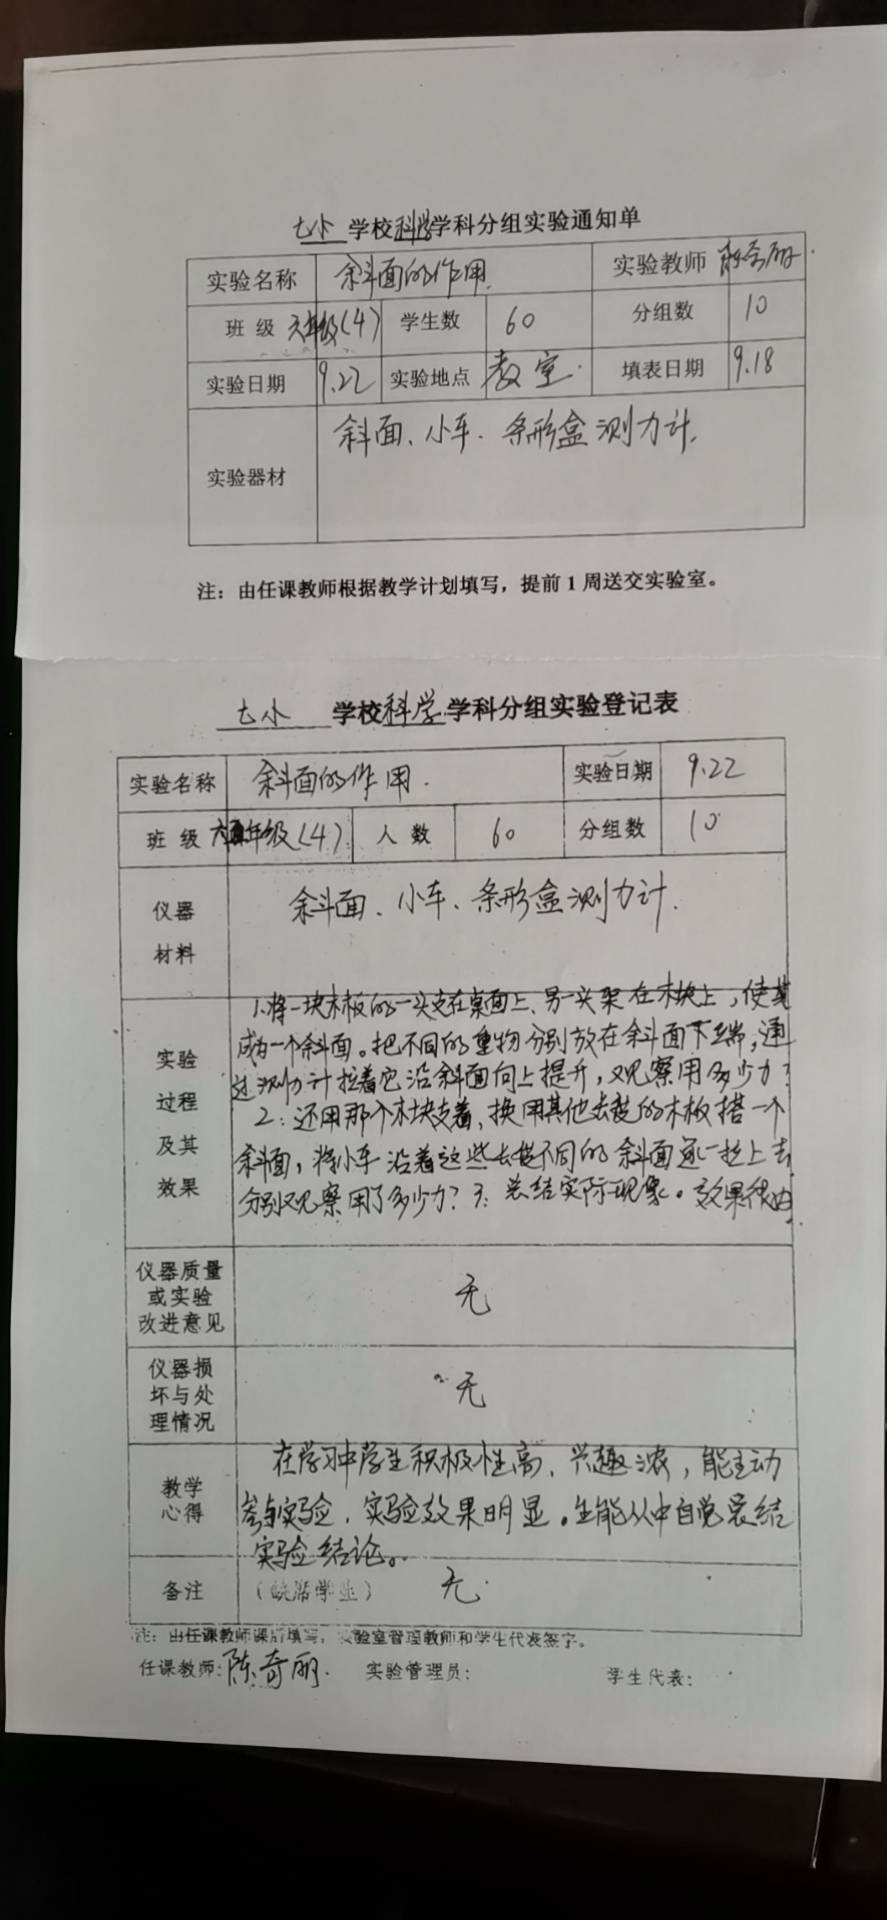 七小 学校科学学科分组实验通知单
实验名称 斜面的作用. 实验教师 陈奇丽.
班 级 六年级(4) 学生数 60 分组数 10
实验日期 9.22 实验地点 教室. 填表日期 9.18
实验器材 斜面、小车、条形盒测力计.
注：由任课教师根据教学计划填写，提前1周送交实验室。
七小 学校科学学科分组实验登记表
实验名称 斜面的作用. 实验日期 9.22
班 级 六年级(4) 人 数 60 分组数 10
仪器 斜面、小车、条形盒测力计.
材料
1.将一块木板的一头支在桌面上、另一头架在木块上，使其
实验 成为一个斜面。把不同的重物分别放在斜面下端，通
过程 过测力计拉着它沿斜面向上提升，观察用多少力？
及其 2：还用那个木块支着，换用其他长度的木板搭一个
效果 斜面，将小车沿着这些长度不同的斜面逐一拉上去
分别观察用了多少力？3：总结实际现象。效果很
仪器质量
或实验 无
改进意见
仪器损
坏与处 无
理情况
在学习中学生积极性高、兴趣浓，能主动
教学 参与实验，实验效果明显。生能从中自觉总结
心得 实验结论。
备注 （缺席学生） 无.
注：由任课教师课后填写，实验室管理教师和学生代表签字。
任课教师：陈奇丽. 实验管理员： 学生代表：